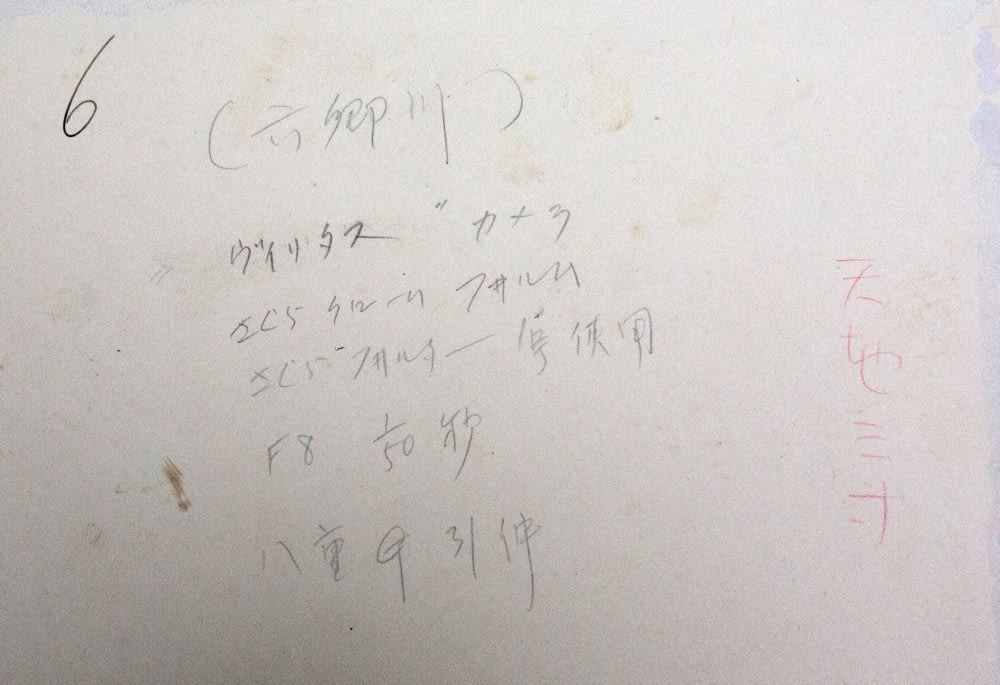 6
(六郷川)
カメラ
さくらクローム フヰルム
さくら フヰルター 使用
F8 1/50 秒
八重 引伸
天地三寸